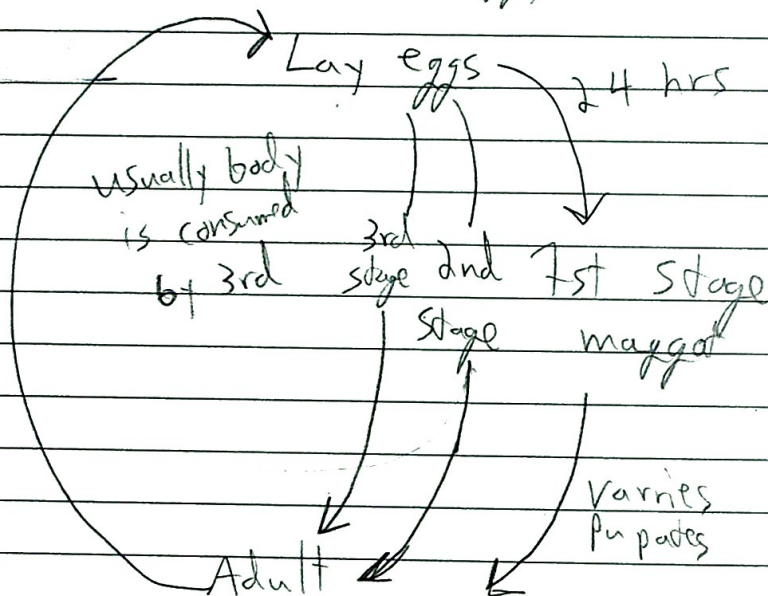 Lay eggs
24 hrs
usually body
is consumed
by 3rd
3rd
stage
2nd
stage
1st stage
maggot
Varries
Pupates
Adult